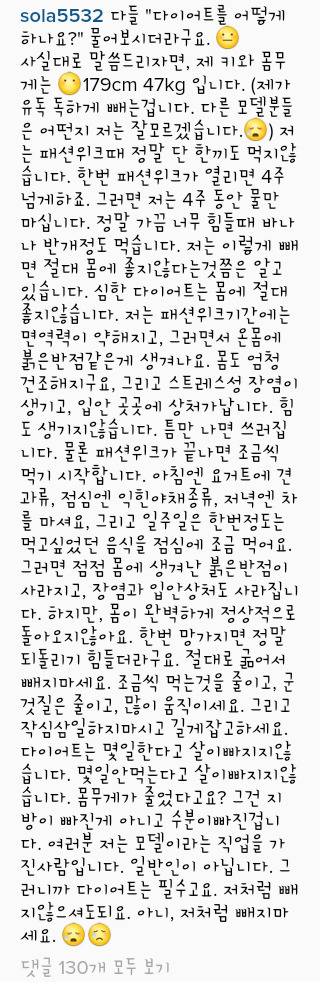 sola5532 다들 "다이어트를 어떻게
하나요?" 물어보시더라구요. 😐
사실대로 말씀드리자면, 제 키와 몸무
게는 😶179cm 47kg 입니다. (제가
유독 독하게 빼는겁니다. 다른 모델분들
은 어떤지 저는 잘모르겠습니다.😳) 저
는 패션위크때 정말 단 한끼도 먹지않
습니다. 한번 패션위크가 열리면 4주
넘게하죠. 그러면 저는 4주 동안 물만
마십니다. 정말 가끔 너무 힘들때 바나
나 반개정도 먹습니다. 저는 이렇게 빼
면 절대 몸에 좋지않다는것쯤은 알고
있습니다. 심한 다이어트는 몸에 절대
좋지않습니다. 저는 패션위크기간에는
면역력이 약해지고, 그러면서 온몸에
붉은반점같은게 생겨나요. 몸도 엄청
건조해지구요, 그리고 스트레스성 장염이
생기고, 입안 곳곳에 상처가납니다. 힘
도 생기지않습니다. 틈만 나면 쓰러집
니다. 물론 패션위크가 끝나면 조금씩
먹기 시작합니다. 아침엔 요거트에 견
과류, 점심엔 익힌야채종류, 저녁엔 차
를 마셔요, 그리고 일주일은 한번정도는
먹고싶었던 음식을 점심에 조금 먹어요.
그러면 점점 몸에 생겨난 붉은반점이
사라지고, 장염과 입안상처도 사라집니
다. 하지만, 몸이 완벽하게 정상적으로
돌아오지않아요. 한번 망가지면 정말
되돌리기 힘들더라구요. 절대로 굶어서
빼지마세요. 조금씩 먹는것을 줄이고, 군
것질은 줄이고, 많이 움직이세요. 그리고
작심삼일하지마시고 길게잡고하세요.
다이어트는 몇일한다고 살이빠지지않
습니다. 몇일안먹는다고 살이빠지지않
습니다. 몸무게가 줄었다고요? 그건 지
방이 빠진게 아니고 수분이빠진겁니
다. 여러분 저는 모델이라는 직업을 가
진사람입니다. 일반인이 아닙니다. 그
러니까 다이어트는 필수고요. 저처럼 빼
지않으셔도되요. 아니, 저처럼 빼지마
세요. 😳😟
댓글 130개 모두 보기